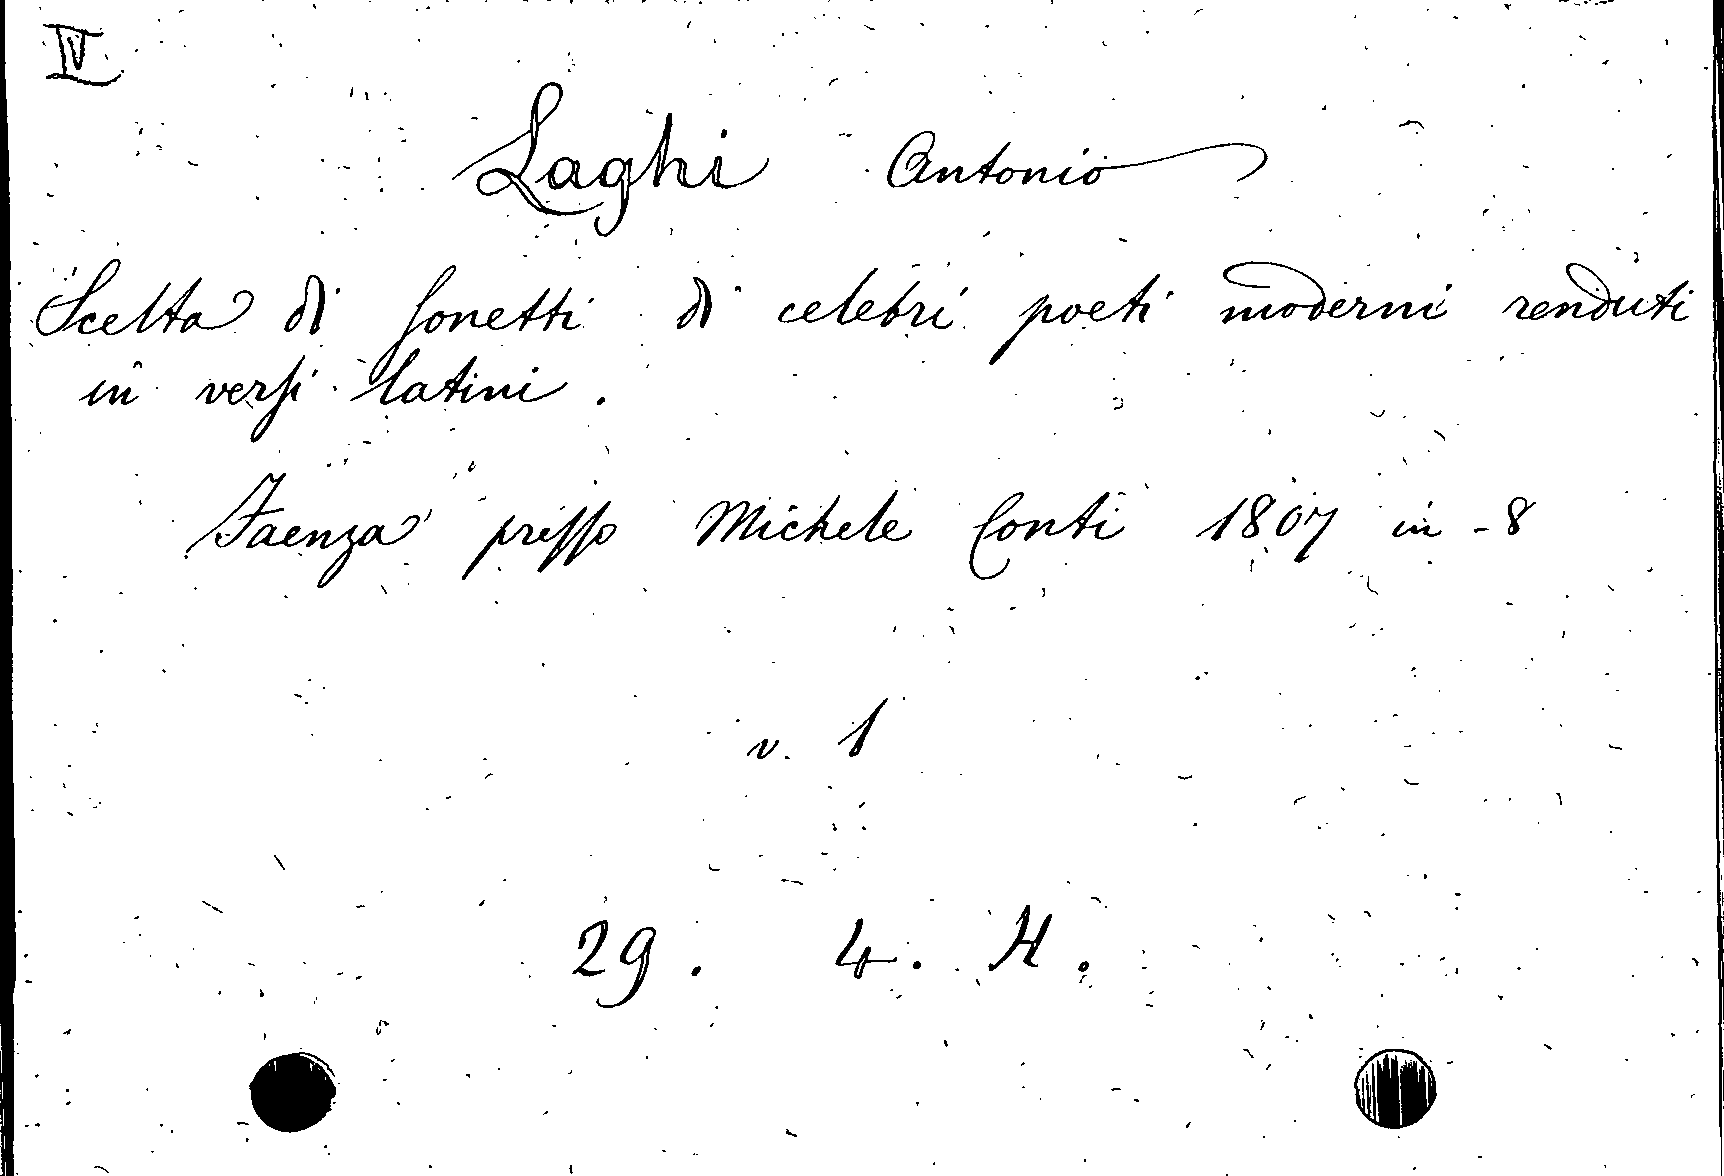 IV
Laghi Antonio
Scelta di sonetti di celebri poeti moderni renduti
in versi latini.
Faenza presso Michele Conti 1807 in-8
v. 1
29. 4. H.